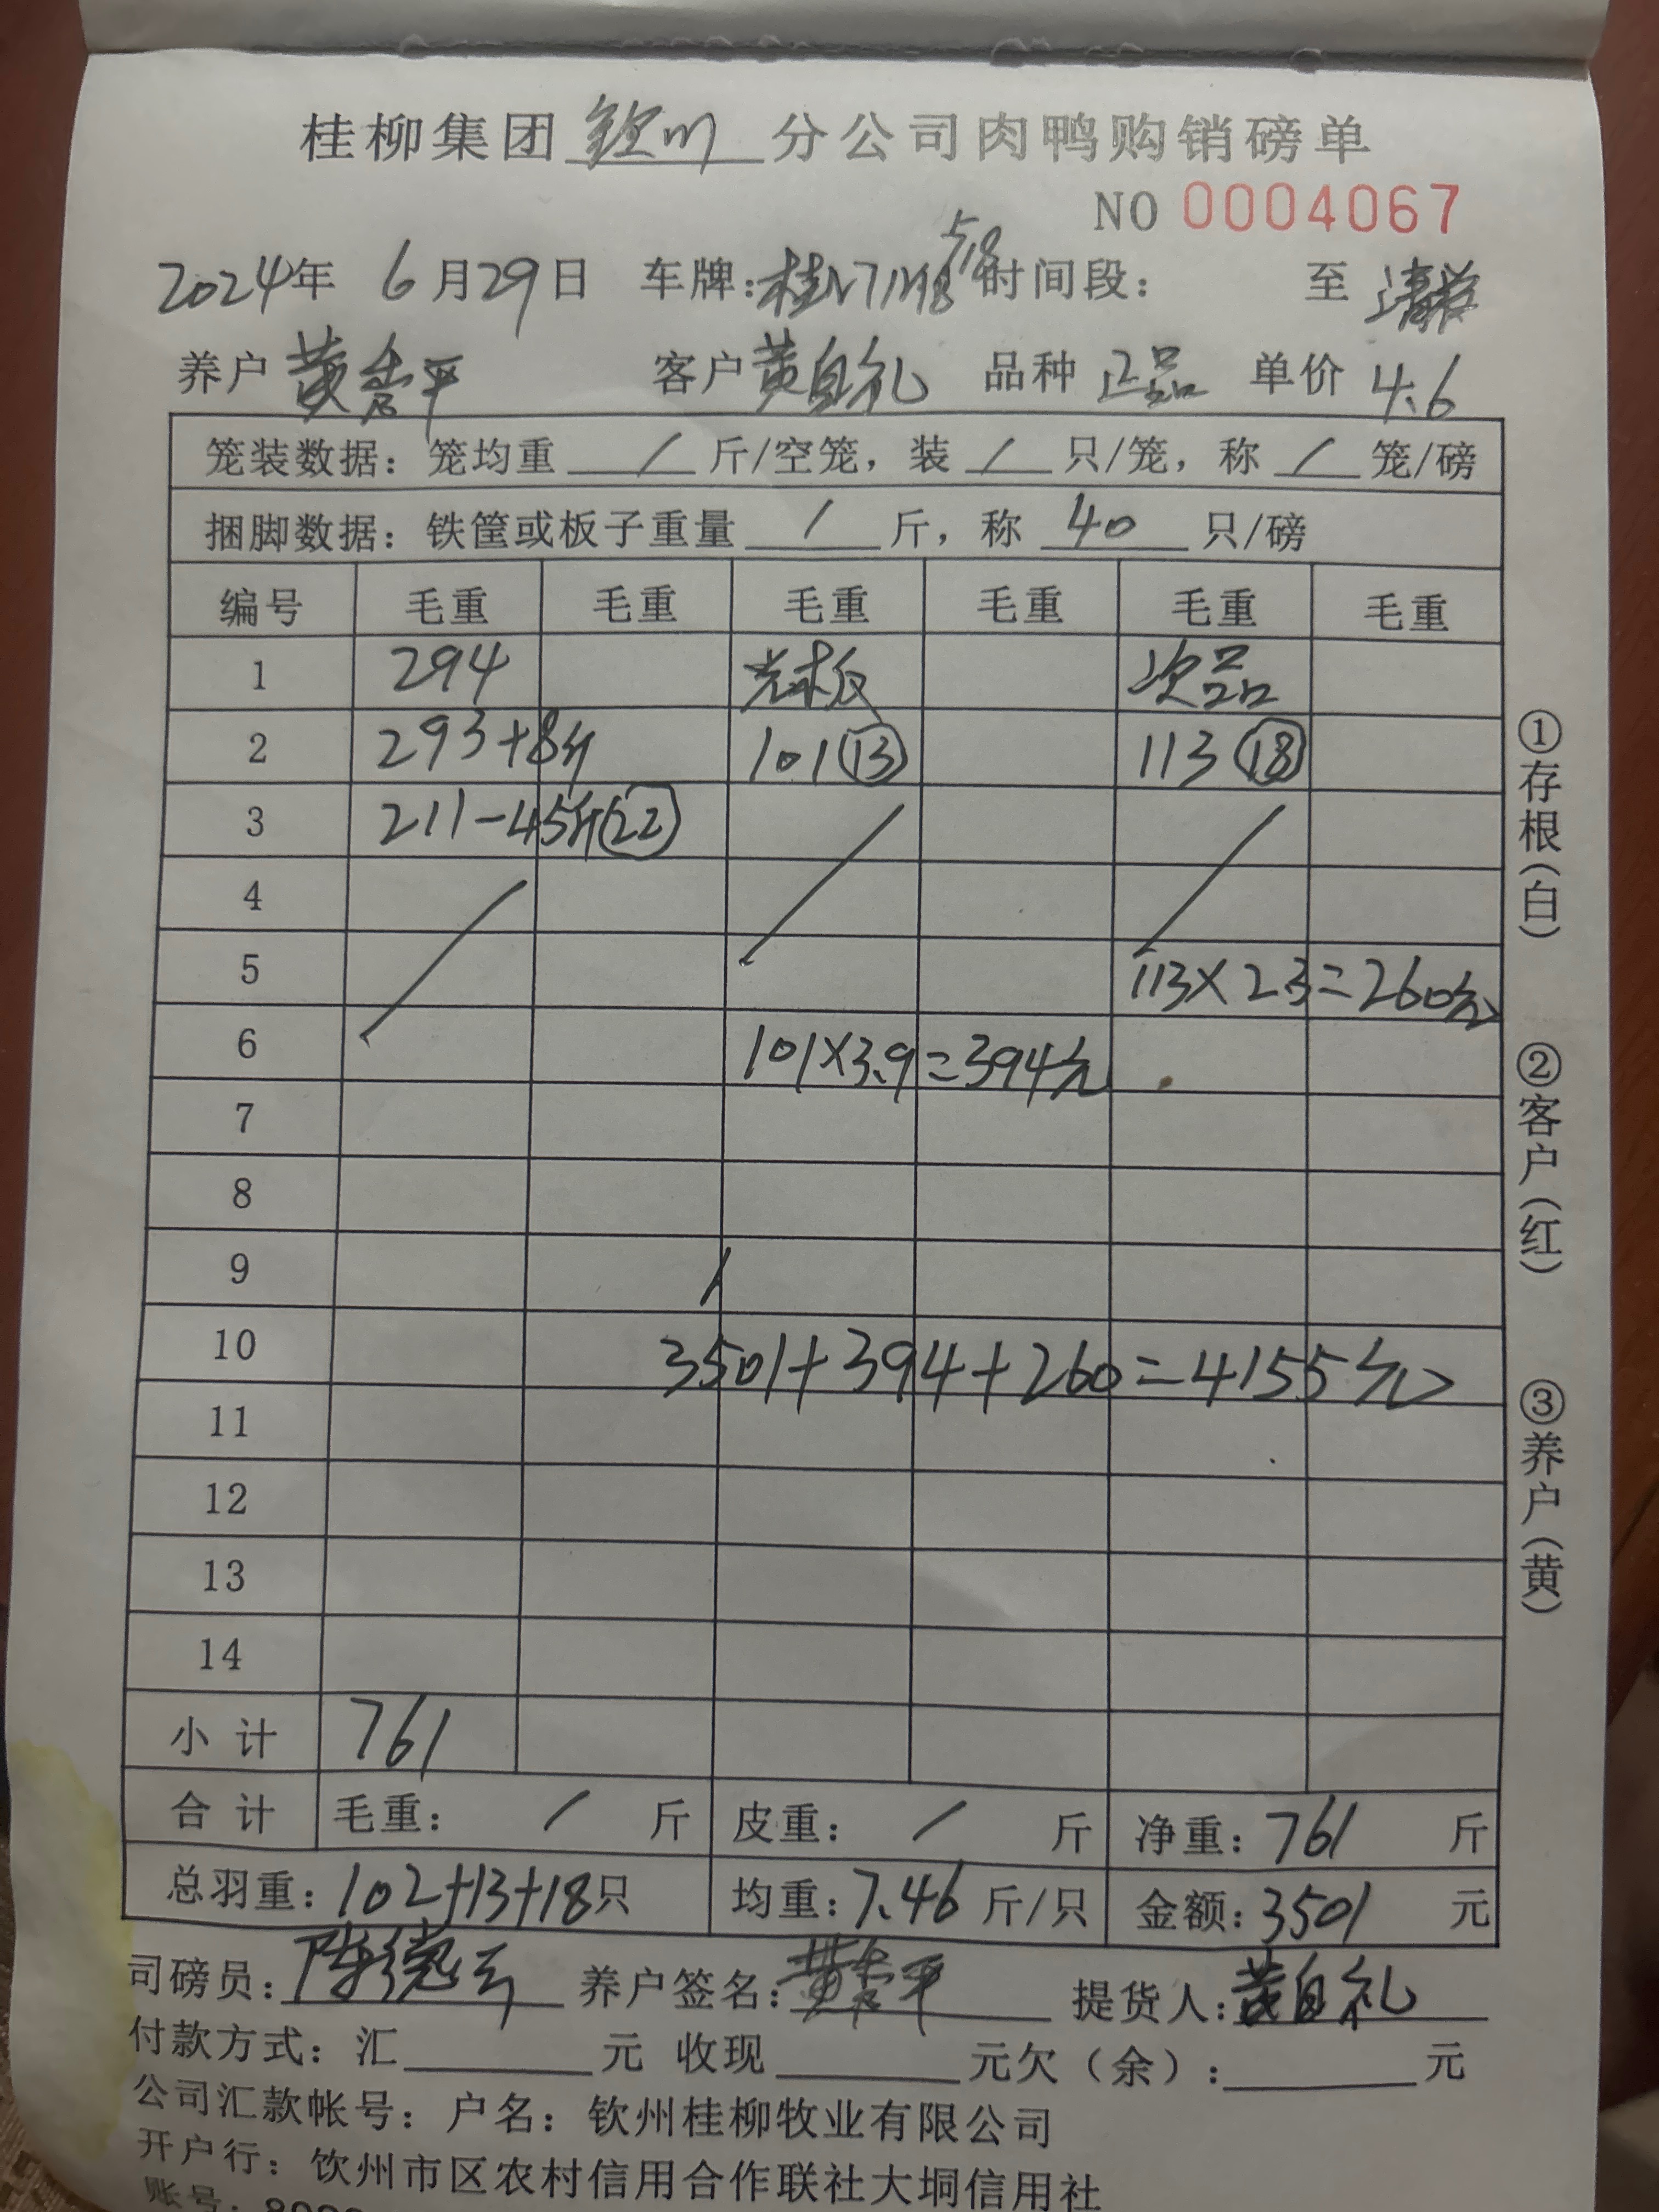 桂柳集团 钦州 分公司肉鸭购销磅单
NO 0004067
2024年 6月29日 车牌: 时间段: 至
养户 黄 平 客户 黄自礼 品种 正品 单价 4.6
笼装数据: 笼均重 / 斤/空笼, 装 / 只/笼, 称 / 笼/磅
捆脚数据: 铁筐或板子重量 / 斤, 称 40 只/磅
编号 毛重 毛重 毛重 毛重 毛重 毛重
1 294 次品
2 293+8斤 101 ⑬ 113 ⑱
3 211-45斤 ㉒
4
5 113×2.3=260元
6 101×3.9=394元
7
8
9
10 3501+394+260=4155元
11
12
13
14
小计 761
合计 毛重: / 斤 皮重: / 斤 净重: 761 斤
总羽重: 102+13+18只 均重: 7.46 斤/只 金额: 3501 元
司磅员: 陈德云 养户签名: 黄 平 提货人: 黄自礼
付款方式: 汇 元 收现 元欠(余): 元
公司汇款帐号: 户名: 钦州桂柳牧业有限公司
开户行: 钦州市区农村信用合作联社大垌信用社
账号:
①存根(白)
②客户(红)
③养户(黄)